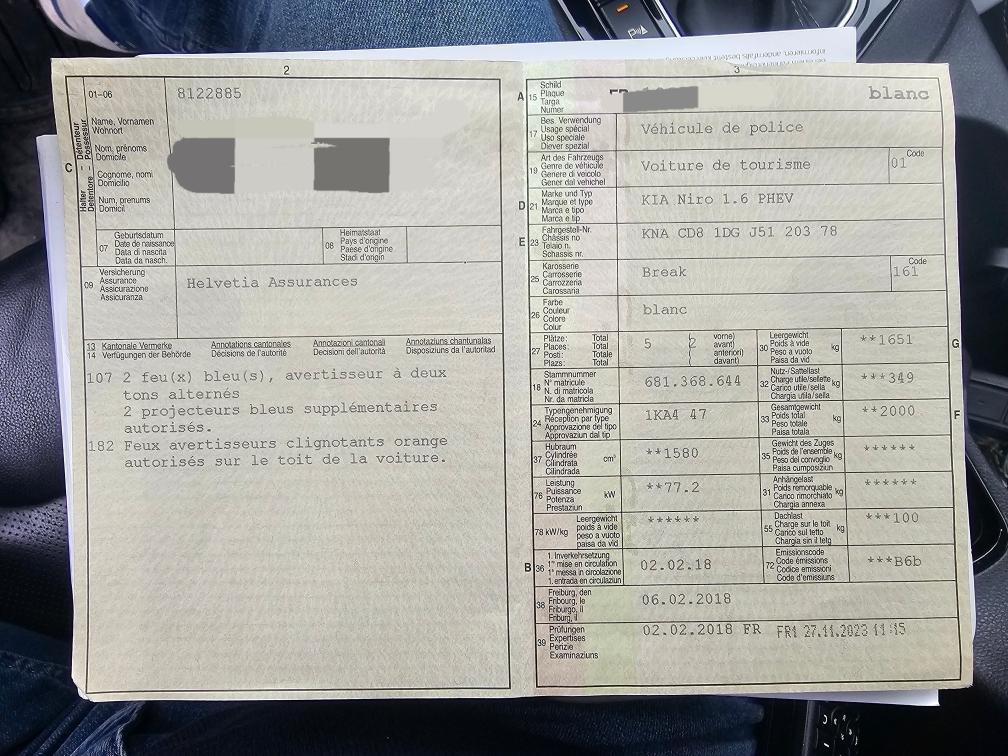 2
01-06
8122885
Détenteur
Possessur
C
Halter
Detentore
Name, Vornamen
Wohnort
Nom, prénoms
Domicile
Cognome, nomi
Domicilio
Num, prenums
Domicil
07
Geburtsdatum
Date de naissance
Data di nascita
Data da nasch.
08
Heimatstaat
Pays d'origine
Paese d'origine
Stadi d'origin
09
Versicherung
Assurance
Assicurazione
Assicuranza
Helvetia Assurances
13 Kantonale Vermerke Annotations cantonales Annotazioni cantonali Annotaziuns chantunalas
14 Verfügungen der Behörde Décisions de l'autorité Decisioni dell'autorità Disposiziuns da l'autoritad
107 2 feu(x) bleu(s), avertisseur à deux
tons alternés
2 projecteurs bleus supplémentaires
autorisés.
182 Feux avertisseurs clignotants orange
autorisés sur le toit de la voiture.
3
A 15
Schild
Plaque
Targa
Numer
blanc
17
Bes. Verwendung
Usage spécial
Uso speciale
Diever spezial
Véhicule de police
19
Art des Fahrzeugs
Genre de véhicule
Genere di veicolo
Gener dal vehichel
Voiture de tourisme
Code
01
D 21
Marke und Typ
Marque et type
Marca e tipo
Marca e tip
KIA Niro 1.6 PHEV
E 23
Fahrgestell-Nr.
Châssis no
Telaio n.
Schassis nr.
KNA CD8 1DG J51 203 78
25
Karosserie
Carrosserie
Carrozzeria
Carossaria
Break
Code
161
26
Farbe
Couleur
Colore
Colur
blanc
27
Plätze: Total
Places: Total
Posti: Totale
Plazs: Total
5
2
vorne)
avant)
anteriori)
davant)
30
Leergewicht
Poids à vide
Peso a vuoto
Paisa da vid
kg
**1651
G
18
Stammnummer
N° matricule
N. di matricola
Nr. da matricla
681.368.644
32
Nutz-/Sattellast
Charge utile/sellette
Carico utile/sella
Chargia utila/sella
kg
***349
24
Typengenehmigung
Réception par type
Approvazione del tipo
Approvaziun dal tip
1KA4 47
33
Gesamtgewicht
Poids total
Peso totale
Paisa totala
kg
**2000
F
37
Hubraum
Cylindrée
Cilindrata
Cilindrada
cm³
**1580
35
Gewicht des Zuges
Poids de l'ensemble
Peso del convoglio
Paisa cumposiziun
kg
******
76
Leistung
Puissance
Potenza
Prestaziun
kW
**77.2
31
Anhängelast
Poids remorquable
Carico rimorchiato
Chargia annexa
kg
******
78 kW/kg
Leergewicht
poids à vide
peso a vuoto
paisa da vid
******
55
Dachlast
Charge sur le toit
Carico sul tetto
Chargia sin il tetg
kg
***100
B 36
1. Inverkehrsetzung
1re mise en circulation
1a messa in circolazione
1. entrada en circulaziun
02.02.18
72
Emissionscode
Code émissions
Codice emissioni
Code d'emissiuns
***B6b
38
Freiburg, den
Fribourg, le
Friburgo, il
Friburg, il
06.02.2018
39
Prüfungen
Expertises
Perizie
Examinaziuns
02.02.2018 FR FR1 27.11.2023 11:15